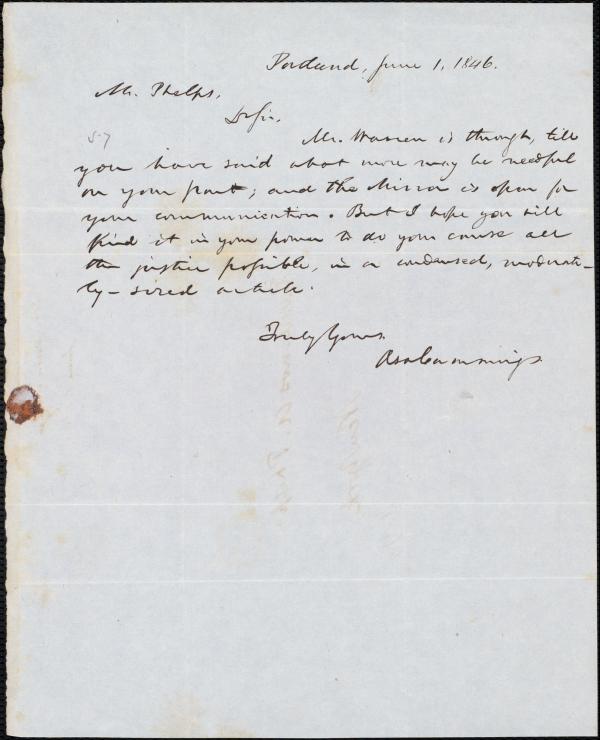 Portland, June 1, 1846.
Mr. Phelps,
Dr Sir,
57
Mr. Warren is through, till
you have said what more may be needful
on your part; and the Mirror is open for
your communication. But I hope you will
find it in your power to do your cause all
the justice possible, in a condensed, moderate-
ly-sized article.
Truly Yours.
Asa Cummings.